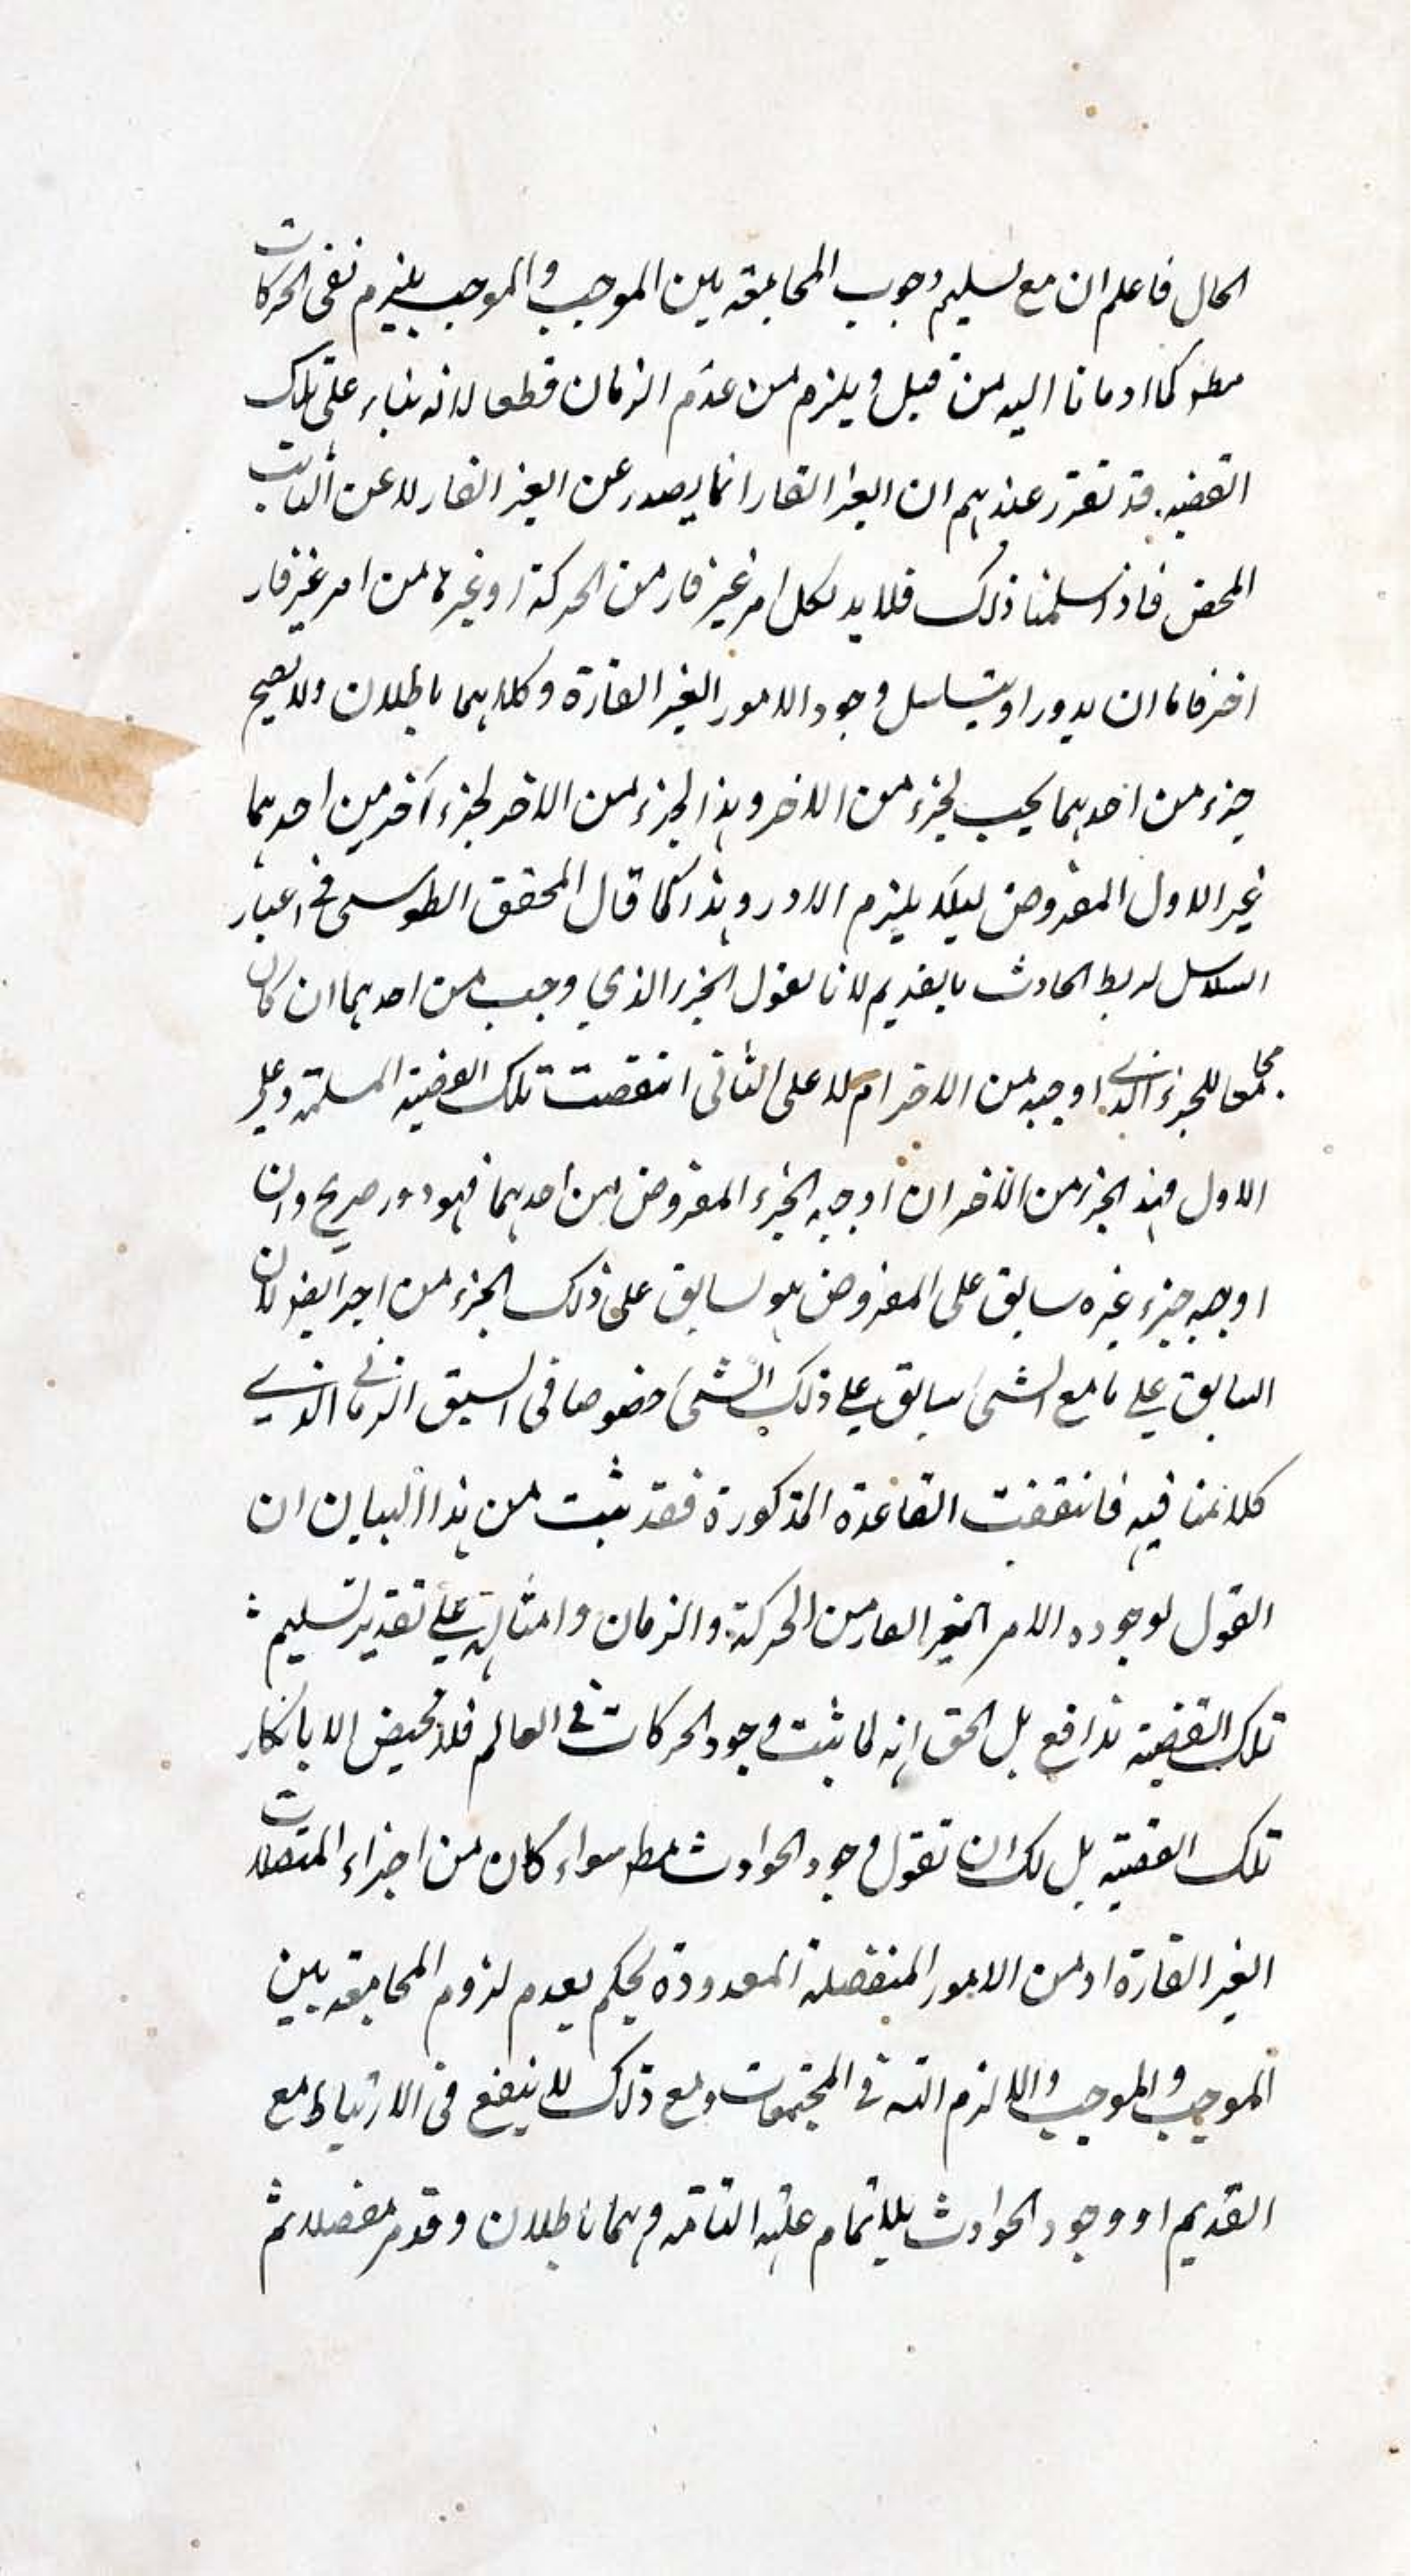 الحال فاعلم ان مع تسليم وجوب المجامعة بين الموجب والموجب يلزم نفى الحركات
مطلو كما اومانا اليه من قبل ويلزم من عدم الزمان قطعا لانه بناء على تلك
القضيه قد تقرر عندهم ان الغير القار انما يصدر عن الغير القار لا عن الثابت
المحض فاذا سلمنا ذلك فلا بد لكل امر غير قار من الحركة او غيرها من امر غير قار
اخر فاما ان يدور او يتسلسل وجود الامور الغير القارة وكلاهما باطلان ولا يصح
جزء من احدهما يجب لجزء من الاخر وهذا الجزء من الاخر لجزء آخر من احدهما
غير الاول المفروض ليلا يلزم الدور وهذا كما قال المحقق الطوسى في اعتبار
السلاسل لربط الحادث بالقديم لانا نقول الجزء الذي وجب من احدهما ان كان
مجامعا للجزء الذي اوجبه من الاخر ام لا على الثانى انتقضت تلك القضية المسلمة وعلى
الاول فهذا الجزء من الاخر ان اوجبه الجزء المفروض من احدهما فهو دور صريح وان
اوجبه جزء غيره سابق على المفروض هو سابق على ذلك الجزء من اجزا ايضا لان
السابق على ما مع الشئ سابق على ذلك الشئ خصوصا فى السبق الزماني الذي
كلامنا فيه فانتقضت القاعدة المذكورة فقد ثبت من هذا البيان ان
القول لوجوده الامر الغير القار من الحركة والزمان وامثاله على تقدير تسليم
تلك القضية تدافع بل الحق انه لما ثبت وجود الحركات في العالم فلا محيض الا بانكار
تلك القضية بل لك ان تقول وجود الحوادث مطلو سواء كان من اجزاء المتصلات
الغير القارة او من الامور المنفصلة المعدودة يحكم بعدم لزوم المجامعة بين
الموجب والموجب والا لزم التسـ في المجتمعات ومع ذلك لا ينفع فى الارتباط مع
القديم او وجود الحوادث بلا تمام علته التامة وهما باطلان وقد مر مفصلا ثم